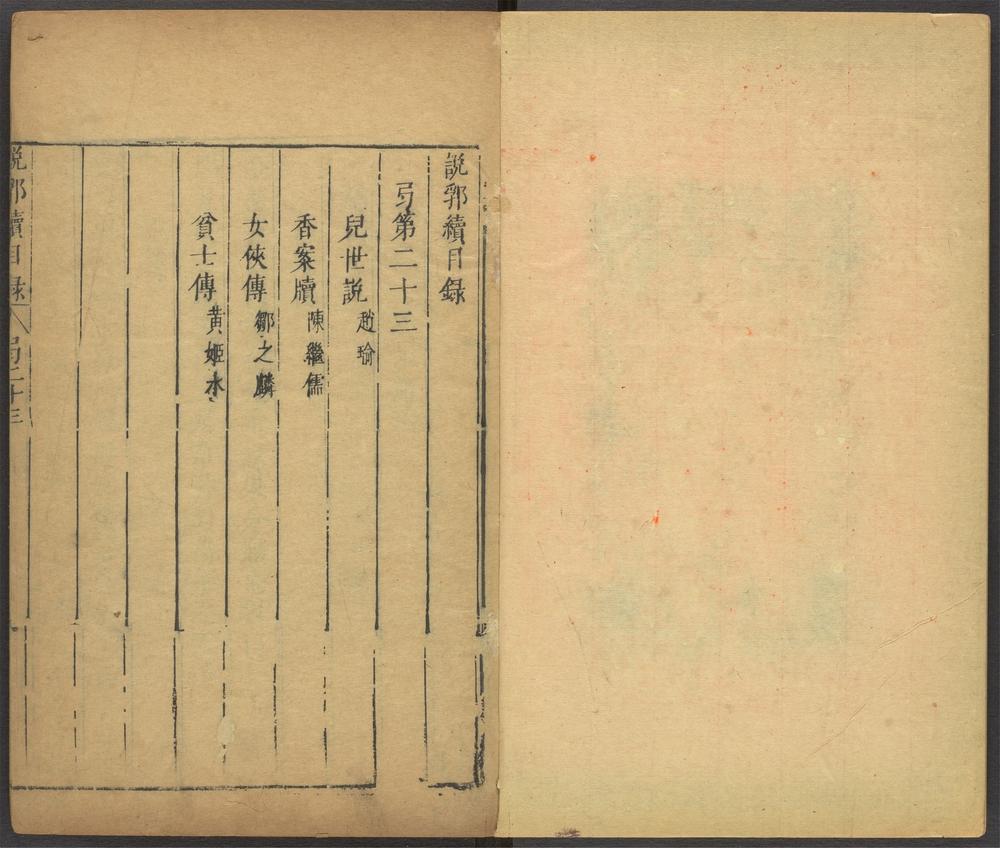 說郛續目録
弓第二十三
兒世説 趙瑜
香案牘 陳繼儒
女俠傳 鄒之麟
貧士傳 黄姬水
説郛續目録 弓二十三